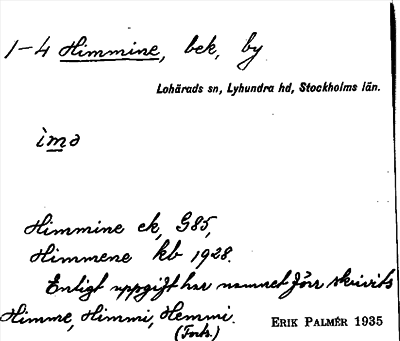 1-4 Himmine, bek, by
Lohärads sn, Lyhundra hd, Stockholms län.
ìmə
Himmine ek, G85,
Himmene kb 1928.
Enligt uppgift har namnet förr skrivits
Himme, Himmi, Hemmi.
(Forts.)
ERIK PALMÉR 1935